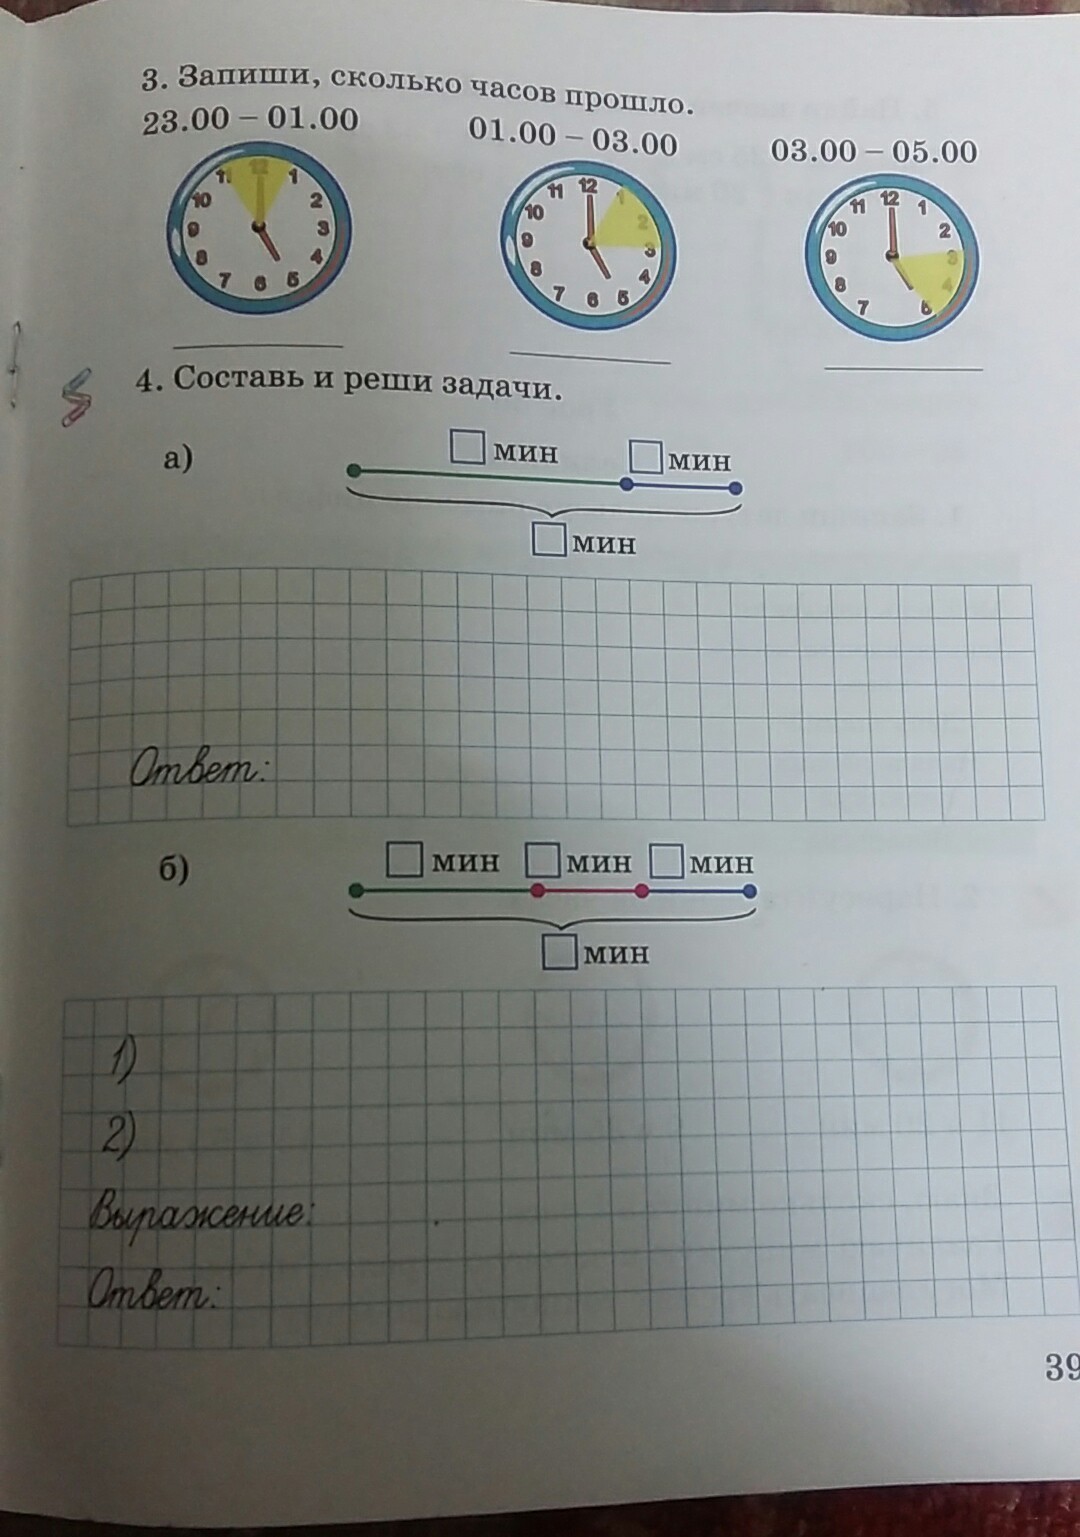 3. Запиши, сколько часов прошло.
23.00 – 01.00
01.00 – 03.00
03.00 – 05.00
11 12 1
10 2
9 3
8 4
7 6 5
11 12 1
10 2
9 3
8 4
7 6 5
11 12 1
10 2
9 3
8 4
7 6
4. Составь и реши задачи.
а)
мин мин
мин
Ответ:
б)
мин мин мин
мин
1)
2)
Выражение:
Ответ:
39